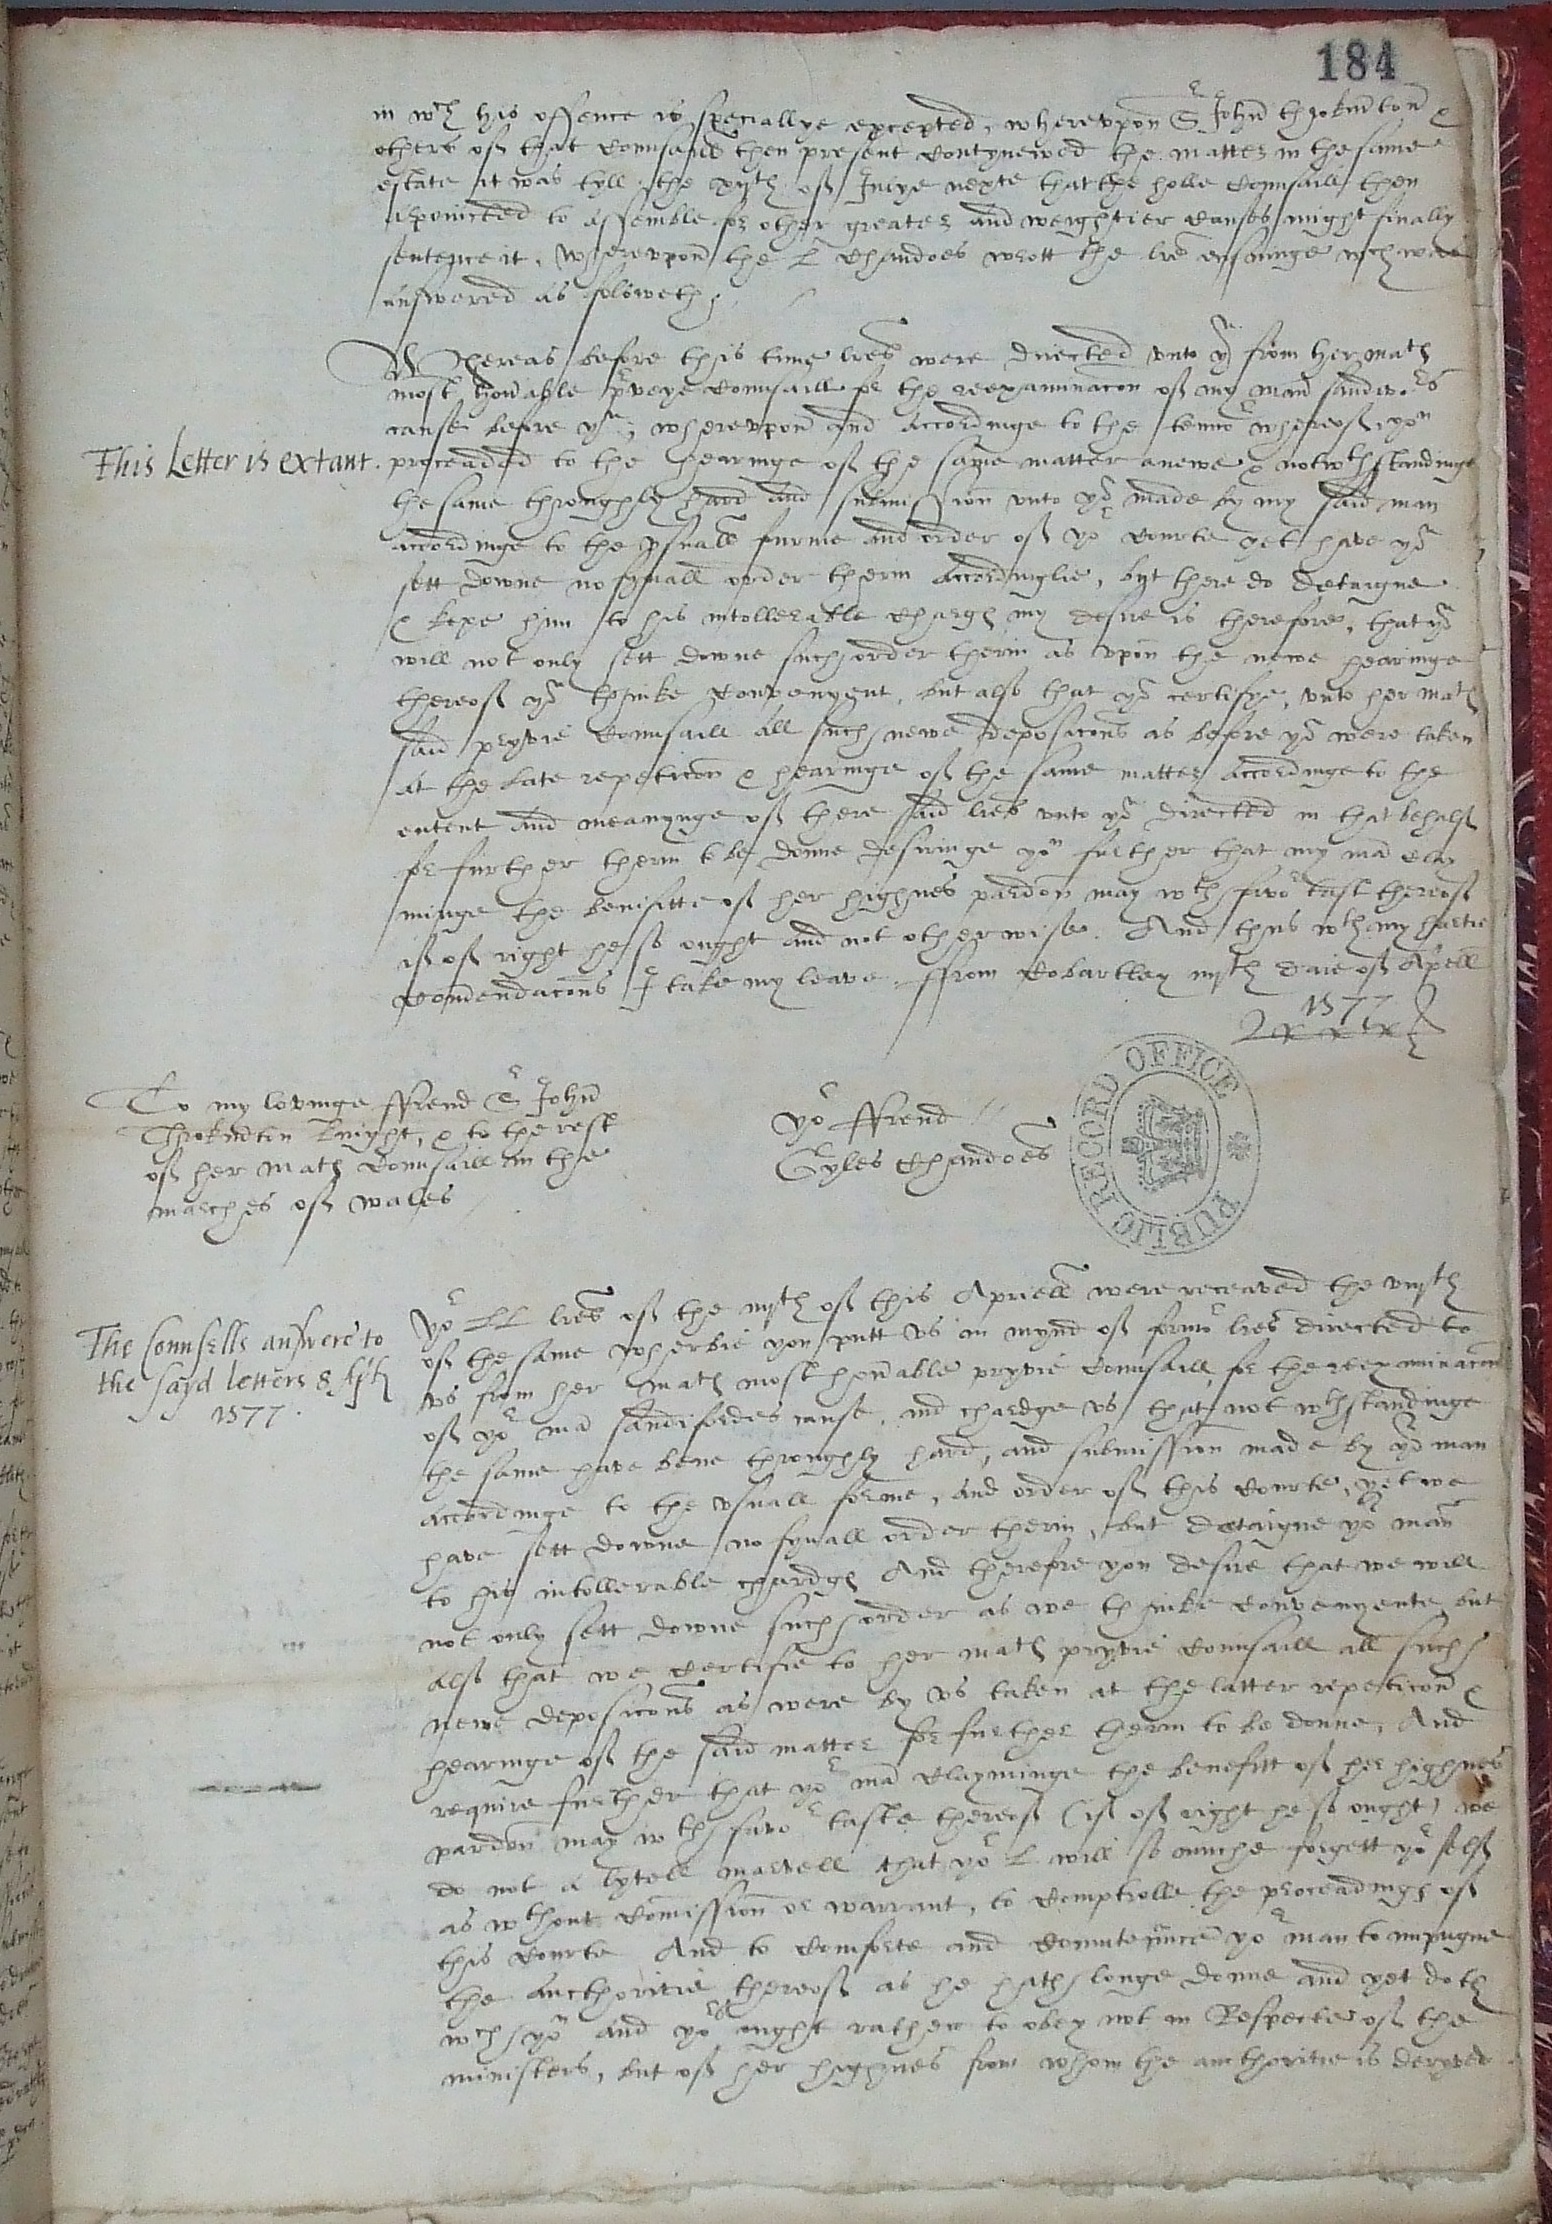 184
in wch his offence is speciallye excepted, wherevpon Sr John throkmton &
others off that Counsaill then present Contynewed the matter in the same
estate it was tyll the xijth off Julye nexte that the holle Counsaill then
apoincted to assemble for other greater and weightier Causes might finally
sentence it, Wherevpon the L Chandoes wrott the lres ensuinge wch were
answered as foloweth
Whereas before this time lres were directed vnto yo from her math
most honable pveye Counsaill for the reexaminacon off my man Sandiv
cause before yo, wherevpon and accordinge to the tennor whereoff you
This Letter is extant.
proceaded to the hearinge off the same matter anewe & notwthstandinge
the same throughly hard and submission vnto yo made by my said man
accordinge to the vsuall furme and order off yor Courte yet have yo
sett downe no fynall order therin accordinglie, but there do detaigne
& kepe him to his intollerable Charge my desire is therefore, that yo
will not only sett downe such order therin as vpon the newe hearinge
thereoff yo thinke Convenyent, but also that yo certifye, vnto her math
said pryvie Counsaill all such newe deposicons as before yo were taken
at the late repeticon & hearinge off the same matter accordinge to the
entent and meanynge off there said lres vnto yo directed in that behalff
for further therin to be donne desiringe you further that my man clay
minge the benifitte off her highnes pardon may wth favor tast thereoff
iff off right he so ought and not otherwise. And thus wth my hartie
Comendacons I take my leave. ffrom Cobartley iijth daie off Aprill
1577
To my lovinge ffrend Sr John
Throkmton knight, & to the rest
off her math Counsaill in the
marches off wales
yor ffrend
Gyles Chandoes
PUBLIC RECORD OFFICE
yor LL lres off the iijth off this Apriell were receaved the viijth
The Counsells answere to
the sayd letters 8 Ap
1577.
off the same wherbie you putt vs in mynd off former lres directed to
vs from her math most honable pryvie Counsaill, for the reexaminacon
off yor man Sandifordes cause, and chardge vs that not wthstandinge
the same have bene throughly hard, and submission made by yor man
accordinge to the vsuall forme, and order off this Courte, yet we
have sett downe no fynall order therin, but detaigne yor man
to his intollerable chardge And therefore you desire that we will
not only sett downe such order as we thinke Convenyente but
also that we Certifie to her math pryvie Counsaill all such
newe deposicons as were by vs taken at the latter repeticon &
hearinge off the said matter for further therin to be donne, And
require further that yor man Clayminge the benefitt off her highnes
pardon may wth favor taste thereoff (iff off right he so ought) we
do not a lytell marvell that yor L will so muche forgett yor selff
as wthout Comission or warrant, to Comptrolle the proceadings off
this Courte And to Comforte and Countenance yor man to impugne
the aucthoritie thereoff as he hath longe donne and yet doth
wch yo and yors ought rather to obey not in Respecte off the
ministers, but off her highnes from whom the aucthoritie is deryved